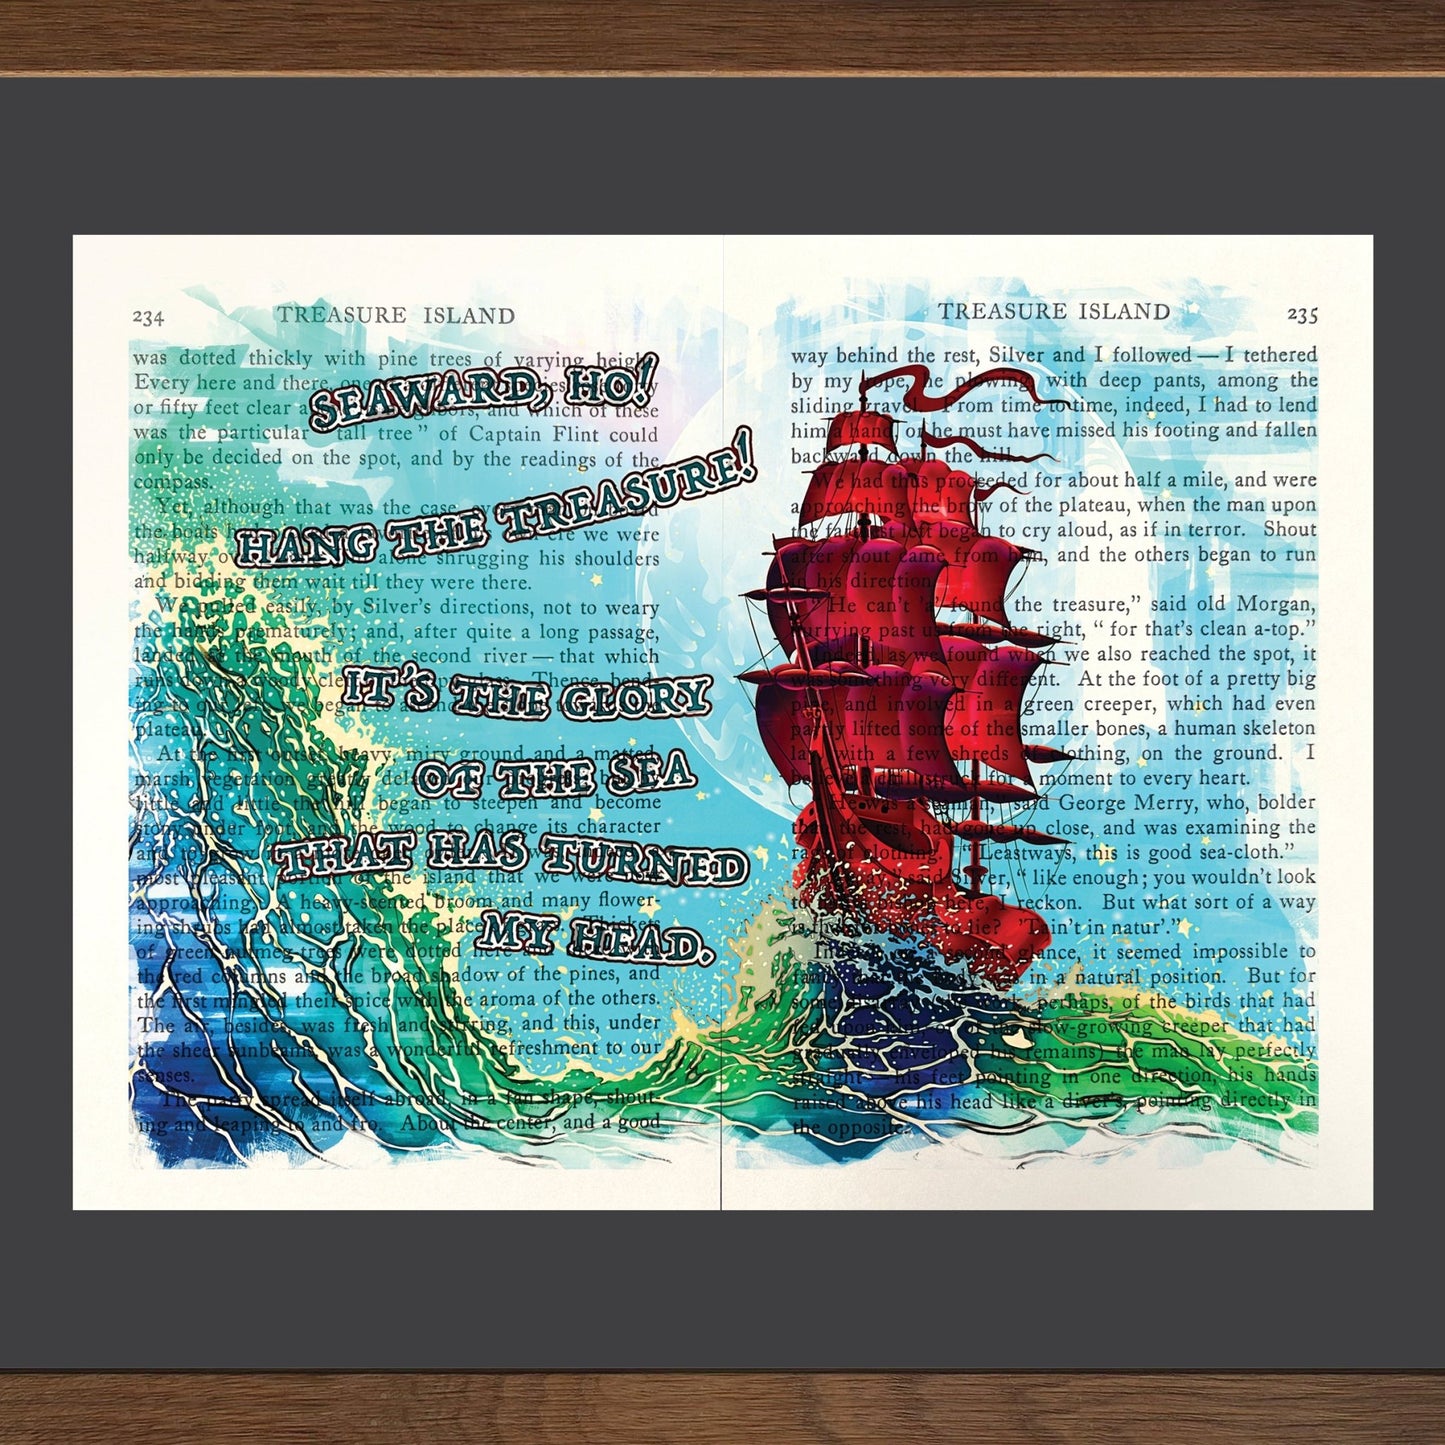 234 TREASURE ISLAND
was dotted thickly with pine trees of varying height
Every here and there,
or fifty feet clear and which of these
was the particular "tall tree" of Captain Flint could
only be decided on the spot, and by the readings of the
compass.
Yet, although that was the case,
the boats we were
halfway shrugging his shoulders
and bidding them wait till they were there.
We pulled easily, by Silver's directions, not to weary
the hands prematurely; and, after quite a long passage,
landed at the mouth of the second river — that which
runs Thence,
we began to
plateau.
At the first outset, heavy, miry ground and a matted,
marsh vegetation greatly
little and little the hill began to steepen and become
stony under foot, and the wood to change its character
and to
most pleasant portion of the island that we were
approaching. A heavy-scented broom and many flower-
ing shrubs had almost taken the place Thickets
of green nutmeg trees were dotted here
the red columns and the broad shadow of the pines, and
the first mingled their spice with the aroma of the others.
The air, besides, was fresh and stirring, and this, under
the sheer sunbeams, was a wonderful refreshment to our
senses.
The party spread itself abroad, in a fan shape, shout-
ing and leaping to and fro. About the center, and a good
SEAWARD, HO!
HANG THE TREASURE!
IT'S THE GLORY
OF THE SEA
THAT HAS TURNED
MY HEAD.
TREASURE ISLAND 235
way behind the rest, Silver and I followed — I tethered
by my rope, he plowing, with deep pants, among the
sliding gravel. From time to time, indeed, I had to lend
him a hand, or he must have missed his footing and fallen
backward down the hill.
We had thus proceeded for about half a mile, and were
approaching the brow of the plateau, when the man upon
the farthest left began to cry aloud, as if in terror. Shout
after shout came from him, and the others began to run
in his direction.
"He can't 'a' found the treasure," said old Morgan,
hurrying past us from the right, "for that's clean a-top."
Indeed, as we found when we also reached the spot, it
was something very different. At the foot of a pretty big
pine, and involved in a green creeper, which had even
partly lifted some of the smaller bones, a human skeleton
lay, with a few shreds of clothing, on the ground. I
believe a chill struck for a moment to every heart.
"He was a seaman," said George Merry, who, bolder
than the rest, had gone up close, and was examining the
rags of clothing. "Leastways, this is good sea-cloth."
said Silver, "like enough; you wouldn't look
to find a bishop here, I reckon. But what sort of a way
is that for bones to lie? 'Tain't in natur'."
Indeed, on a second glance, it seemed impossible to
fancy that the body was in a natural position. But for
some perhaps, of the birds that had
fed upon him, or of the slow-growing creeper that had
gradually enveloped his remains) the man lay perfectly
straight — his feet pointing in one direction, his hands
raised above his head like a diver's, pointing directly in
the opposite.